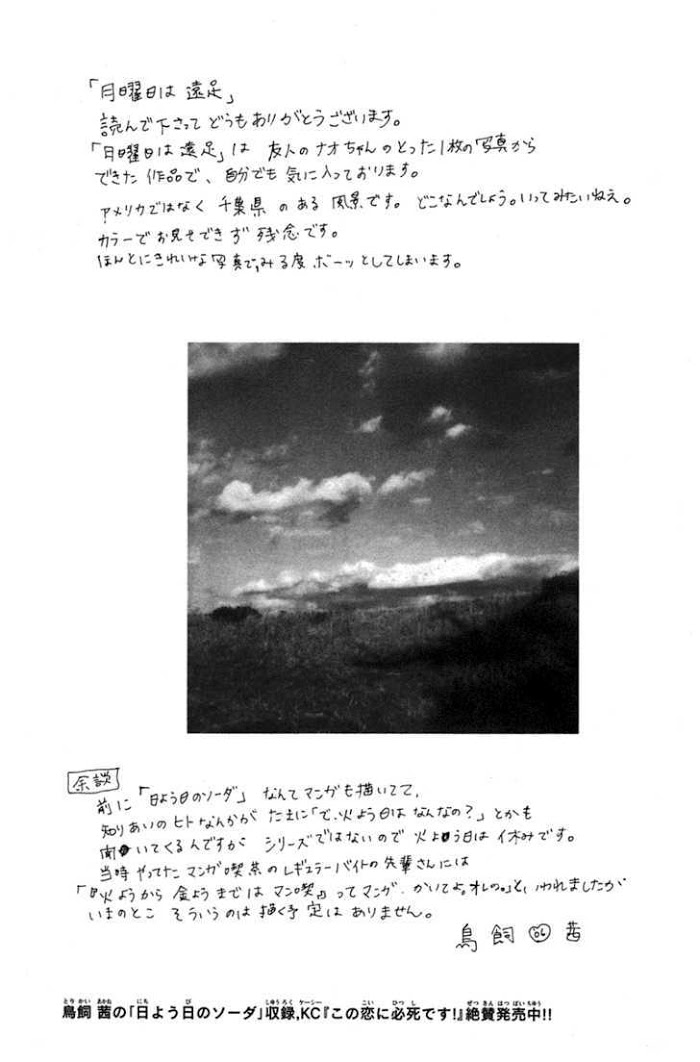 「月曜日は 遠足」
読んで下さって どうもありがとうございます。
「月曜日は 遠足」は 友人のナオちゃんのとった1枚の写真から
できた作品で、自分でも気に入っております。
アメリカではなく 千葉県のある風景です。どこなんでしょう。いってみたいねえ。
カラーでお見せできず残念です。
ほんとにきれいな写真で、みる度ボーッとしてしまいます。
余談
前に「日よう日のソーダ」なんてマンガも描いてて、
知りあいのヒトなんかが たまに「で、火よう日はなんなの?」とかも
聞いてくるんですが シリーズではないので 火よう日は休みです。
当時やってたマンガ喫茶のレギュラーバイトの先輩さんには
「『火ようから金ようまではマン喫』ってマンガ、かいてよ。オレの。」と、いわれましたが
いまのとこ そういうのは描く予定はありません。
鳥飼 06 茜
鳥飼 茜の「日よう日のソーダ」収録,KC『この恋に必死です!』絶賛発売中!!